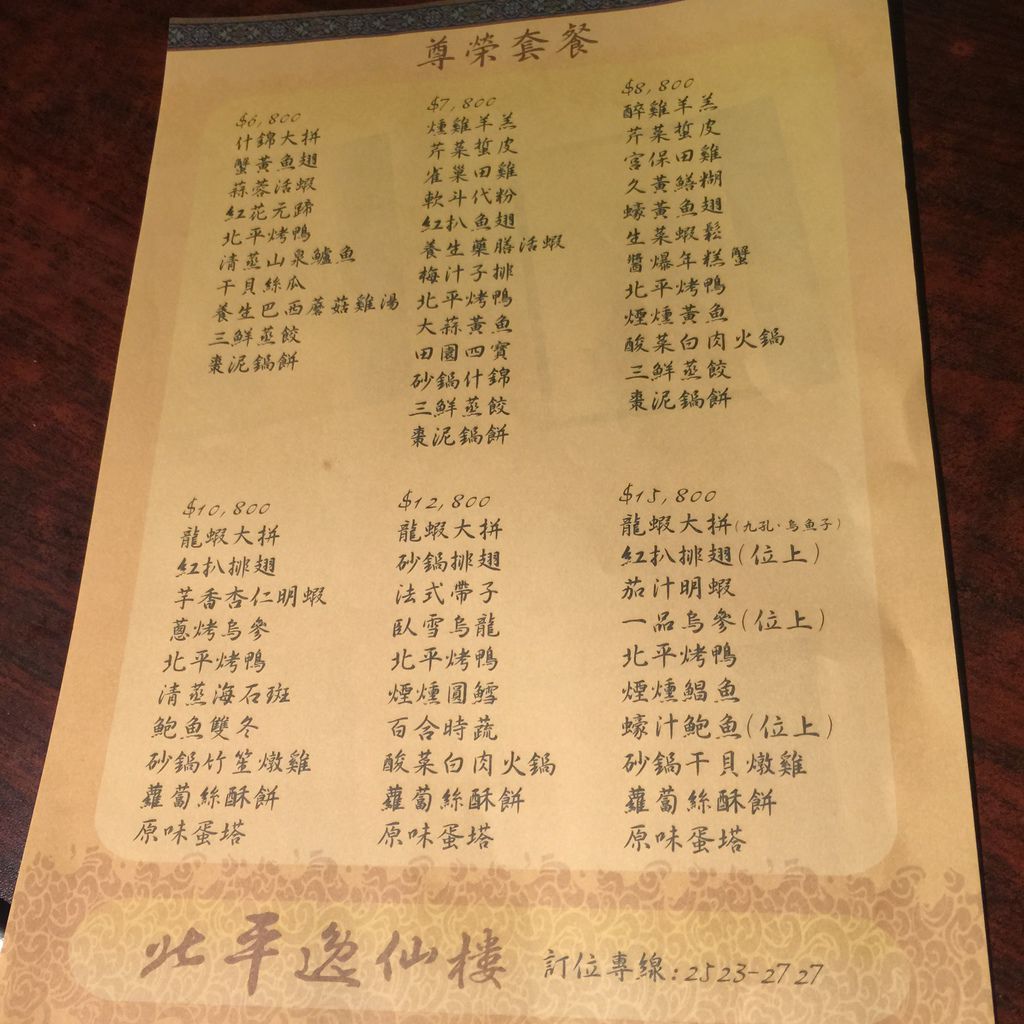 尊榮套餐
$6,800
什錦大拼
蟹黃魚翅
蒜蓉活蝦
紅花元蹄
北平烤鴨
清蒸山泉鱸魚
干貝絲瓜
養生巴西蘑菇雞湯
三鮮蒸餃
棗泥鍋餅
$7,800
燻雞羊羔
芹菜蜇皮
雀巢田雞
軟斗代粉
紅扒魚翅
養生藥膳活蝦
梅汁子排
北平烤鴨
大蒜黃魚
田園四寶
砂鍋什錦
三鮮蒸餃
棗泥鍋餅
$8,800
醉雞羊羔
芹菜蜇皮
宮保田雞
久黃鱔糊
蠔黃魚翅
生菜蝦鬆
醬爆年糕蟹
北平烤鴨
煙燻黃魚
酸菜白肉火鍋
三鮮蒸餃
棗泥鍋餅
$10,800
龍蝦大拼
紅扒排翅
芋香杏仁明蝦
蔥烤烏參
北平烤鴨
清蒸海石斑
鮑魚雙冬
砂鍋竹笙燉雞
蘿蔔絲酥餅
原味蛋塔
$12,800
龍蝦大拼
砂鍋排翅
法式帶子
臥雪烏龍
北平烤鴨
煙燻圓鱈
百合時蔬
酸菜白肉火鍋
蘿蔔絲酥餅
原味蛋塔
$15,800
龍蝦大拼(九孔·烏魚子)
紅扒排翅(位上)
茄汁明蝦
一品烏參(位上)
北平烤鴨
煙燻鯧魚
蠔汁鮑魚(位上)
砂鍋干貝燉雞
蘿蔔絲酥餅
原味蛋塔
北平逸仙樓 訂位專線:2523-2727